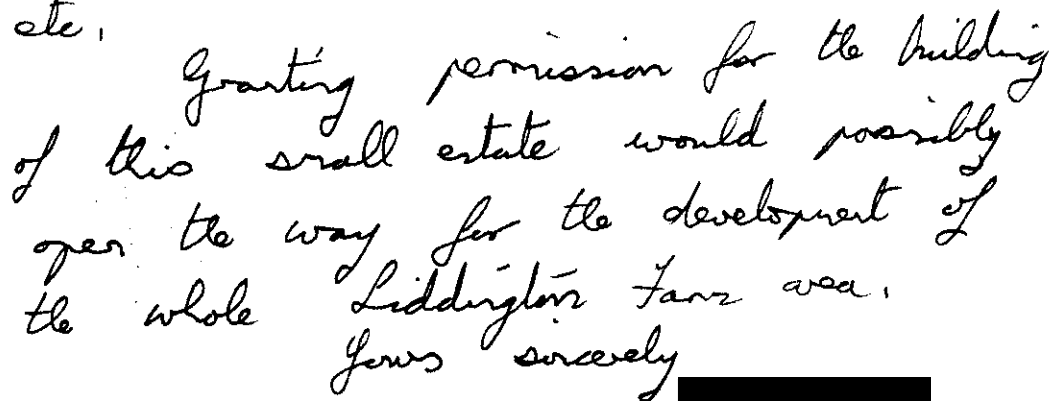 etc.
Granting permission for the building
of this small estate would possibly
open the way for the development of
the whole Liddington Farm area.
Yours sincerely